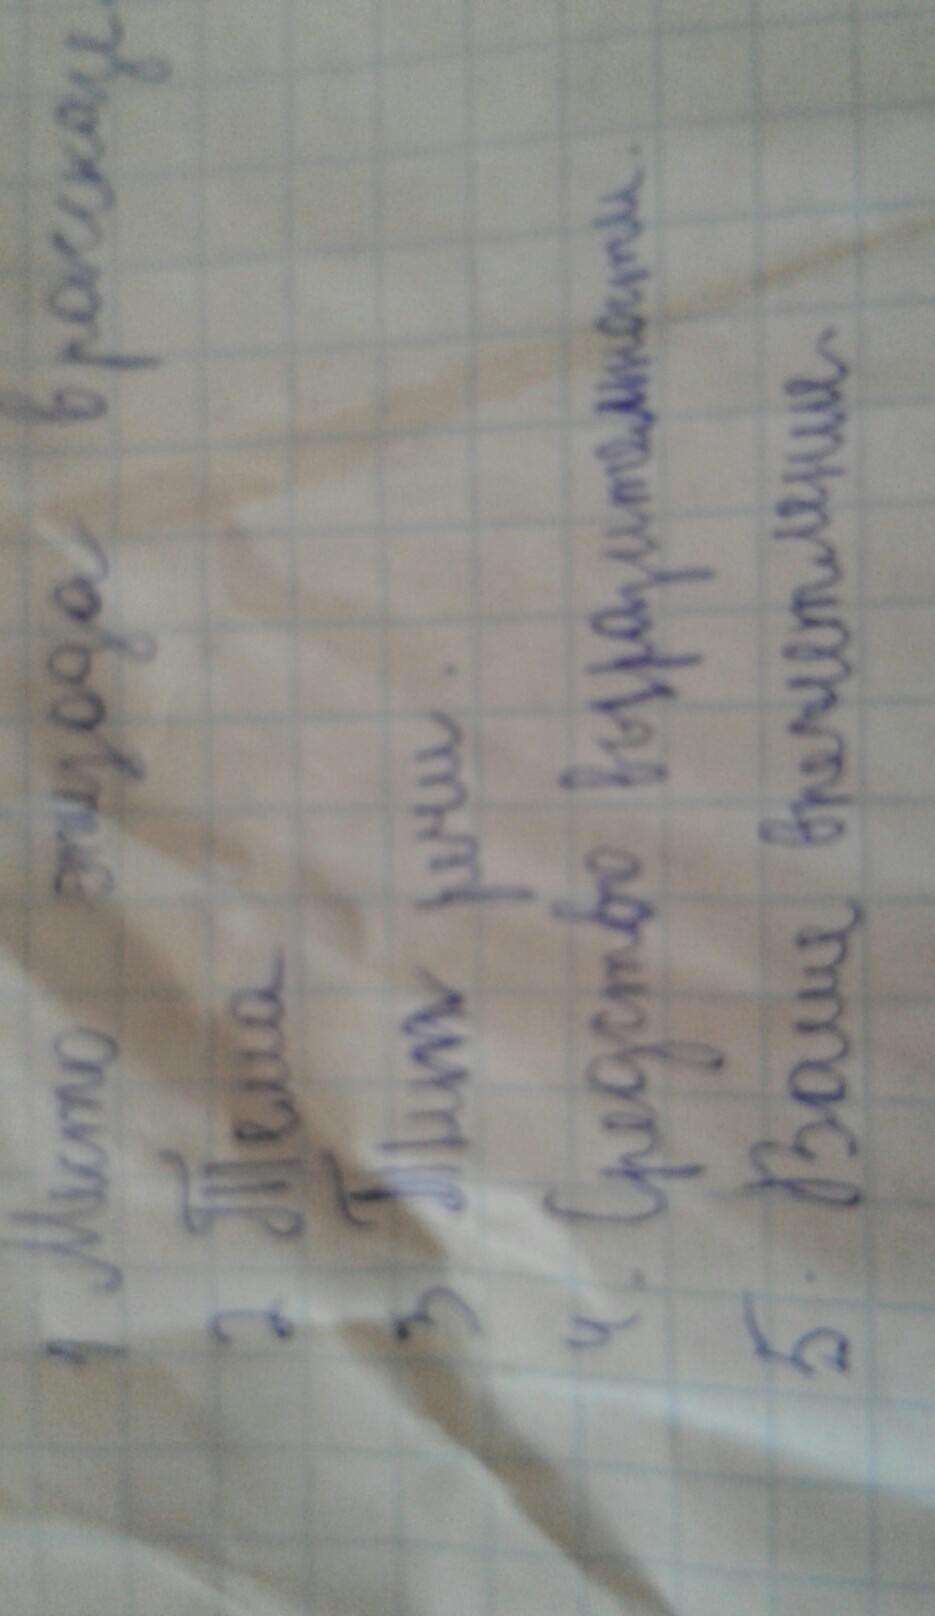 1 Место этюда в рассказе
2 Тема
3 Тип речи.
4. Средство выразительности.
5. Ваши впечатлении.